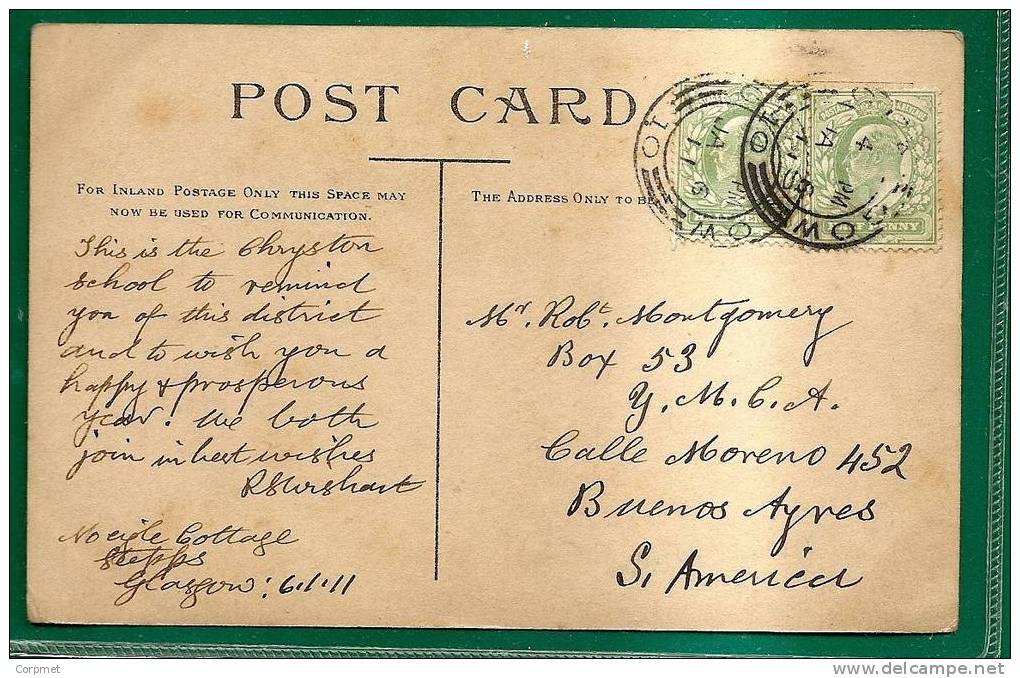 POST CARD
FOR INLAND POSTAGE ONLY THIS SPACE MAY
NOW BE USED FOR COMMUNICATION.
THE ADDRESS ONLY TO BE
This is the Chryston
school to remind
you of this district
and to wish you a
happy & prosperous
year. We both
join in best wishes
RSWishart
Cottage
Stepps
Glasgow: 6.1.11
Mr. Robt. Montgomery
Box 53
Y.M.C.A.
Calle Moreno 452
Buenos Ayres
S. America
Corpmet
delcampe.net